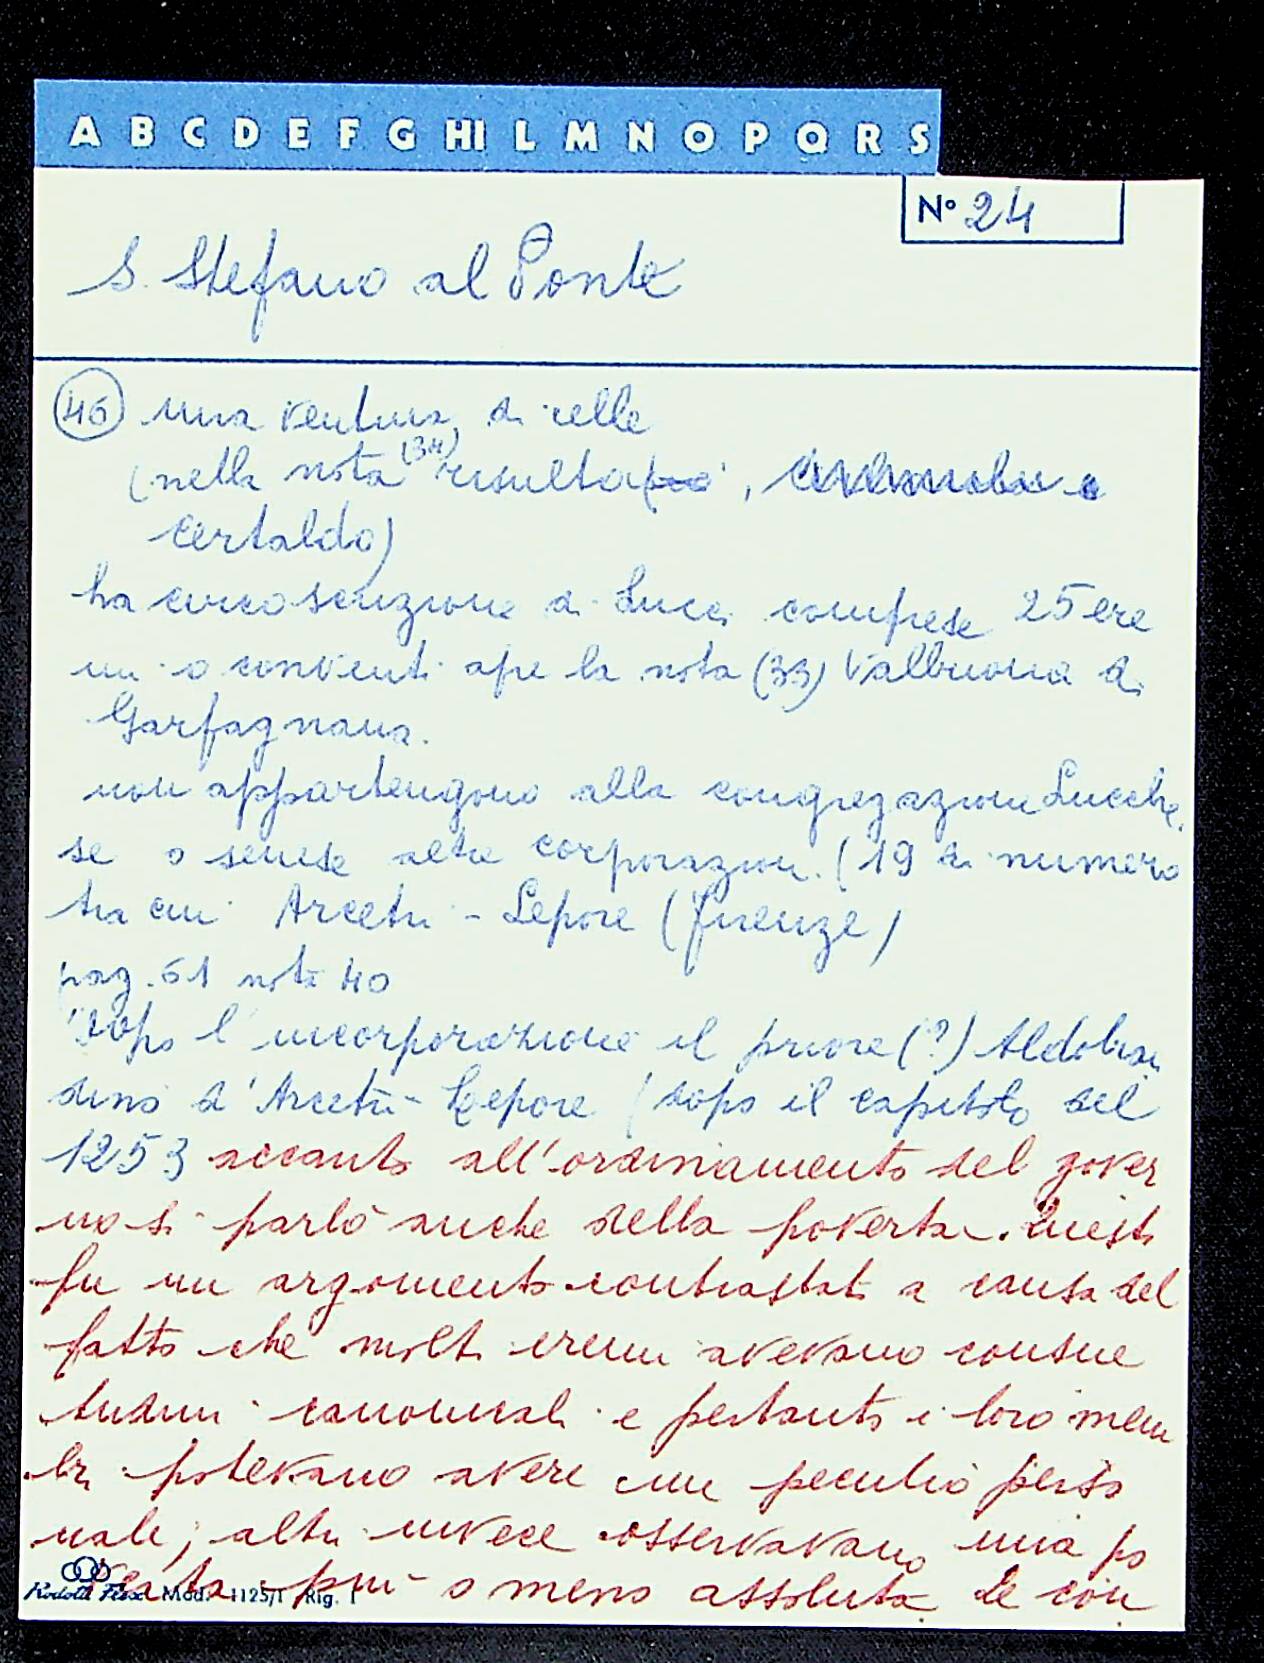 A B C D E F G HI L M N O P Q R S
N° 24
S. Stefano al Ponte
(46) una ventina di celle
(nella nota (34) risulta,
Certaldo)
la circoscrizione di Lucca comprese 25 ere
mi o conventi apre la nota (33) Valbuona di
Garfagnana.
non appartengono alla congregazione Lucche
se o senese altre corporazioni (19 di numero
tra cui Arcetri - Lepore (Firenze)
pag. 61 nota 40
"dopo l'incorporazione il priore (?) Aldobran
dino d'Arcetri - Lepore (dopo il capitolo del
1253 accanto all'ordinamento del gover
no si parlò anche della povertà. Questo
fu un argomento contrastato a causa del
fatto che molti eremi avevano consue
tudini canonicali e pertanto i loro mem
bri potevano avere un peculio perso
nale, altri invece osservavano una po
vertà più o meno assoluta. Le con
Mod. 1125/1 Rig. 1